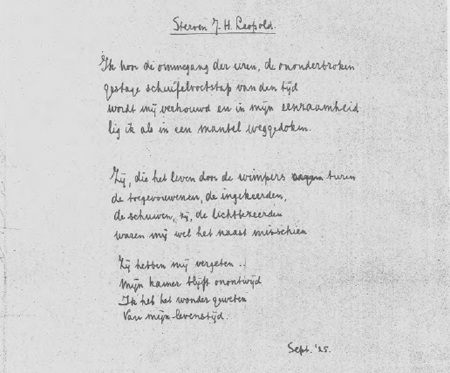 Sterven J. H. Leopold.
Ik hoor de ommegang der uren, de ononderbroken
gestage schuifelvoetstap van den tijd
wordt mij verhouwd en in mijn eenzaamheid
lig ik als in een mantel weggedoken.
Zij, die het leven door de wimpers turen
de toegevouwenen, de ingekeerden,
de schuwen, zij, de lichtbezeerden
waren mij wel het naast misschien
Zij hebben mij vergeten ..
Mijn kamer blijft onontwijd
Ik heb het wonder geweten
Van mijn levenstijd.
Sept. '25.